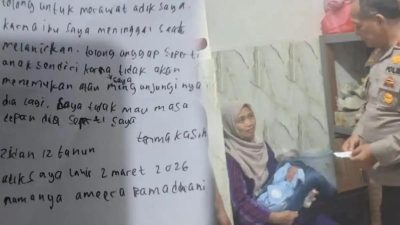 tolong untuk merawat adik saya.
karna ibu saya meninggal saat
melahirkan. tolong anggap seperti
anak sendiri karna tidak akan
saya
menemukan atau mengunjungi nya
dia lagi. Saya tidak mau masa
depan dia seperti saya
terima kasih
Zidan 12 tahun
adik saya lahir 2 maret 2026
namanya ameera ramadhani